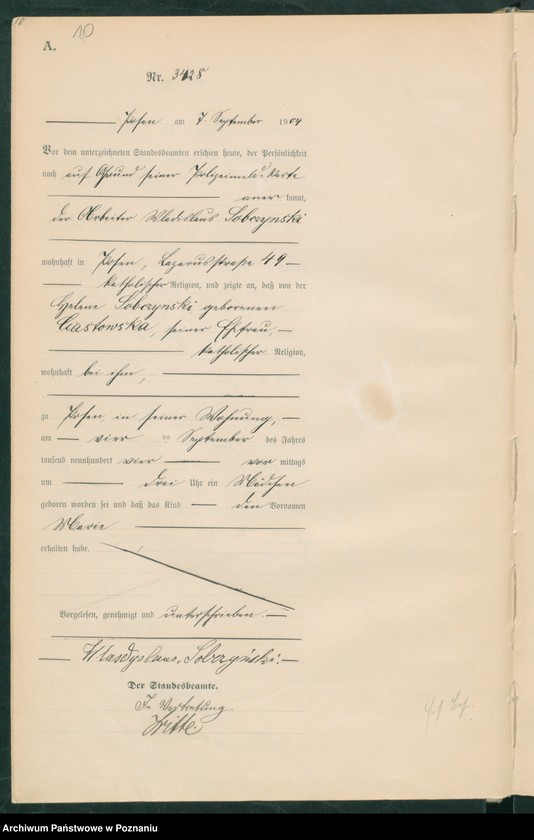 10
10
A.
Nr. 3428
Posen am 7. September 1904
Vor dem unterzeichneten Standesbeamten erschien heute, der Persönlichkeit
nach auf Grund seiner Polizeimeldekarte
anerkannt,
der Arbeiter Wladislaus Sobczynski
wohnhaft in Posen, Lazarusstraße 49
katholischer Religion, und zeigte an, daß von der
Helene Sobczynski geborenen
Ciastowska, seiner Ehefrau,
katholischer Religion,
wohnhaft bei ihm,
zu Posen, in seiner Wohnung,
am vier ten September des Jahres
tausend neunhundert vier vor mittags
um drei Uhr ein Mädchen
geboren worden sei und daß das Kind den Vornamen
Marie
erhalten habe.
Vorgelesen, genehmigt und unterschrieben.
Wladyslaus Sobczyński.
Der Standesbeamte.
In Vertretung
Witte.
Archiwum Państwowe w Poznaniu